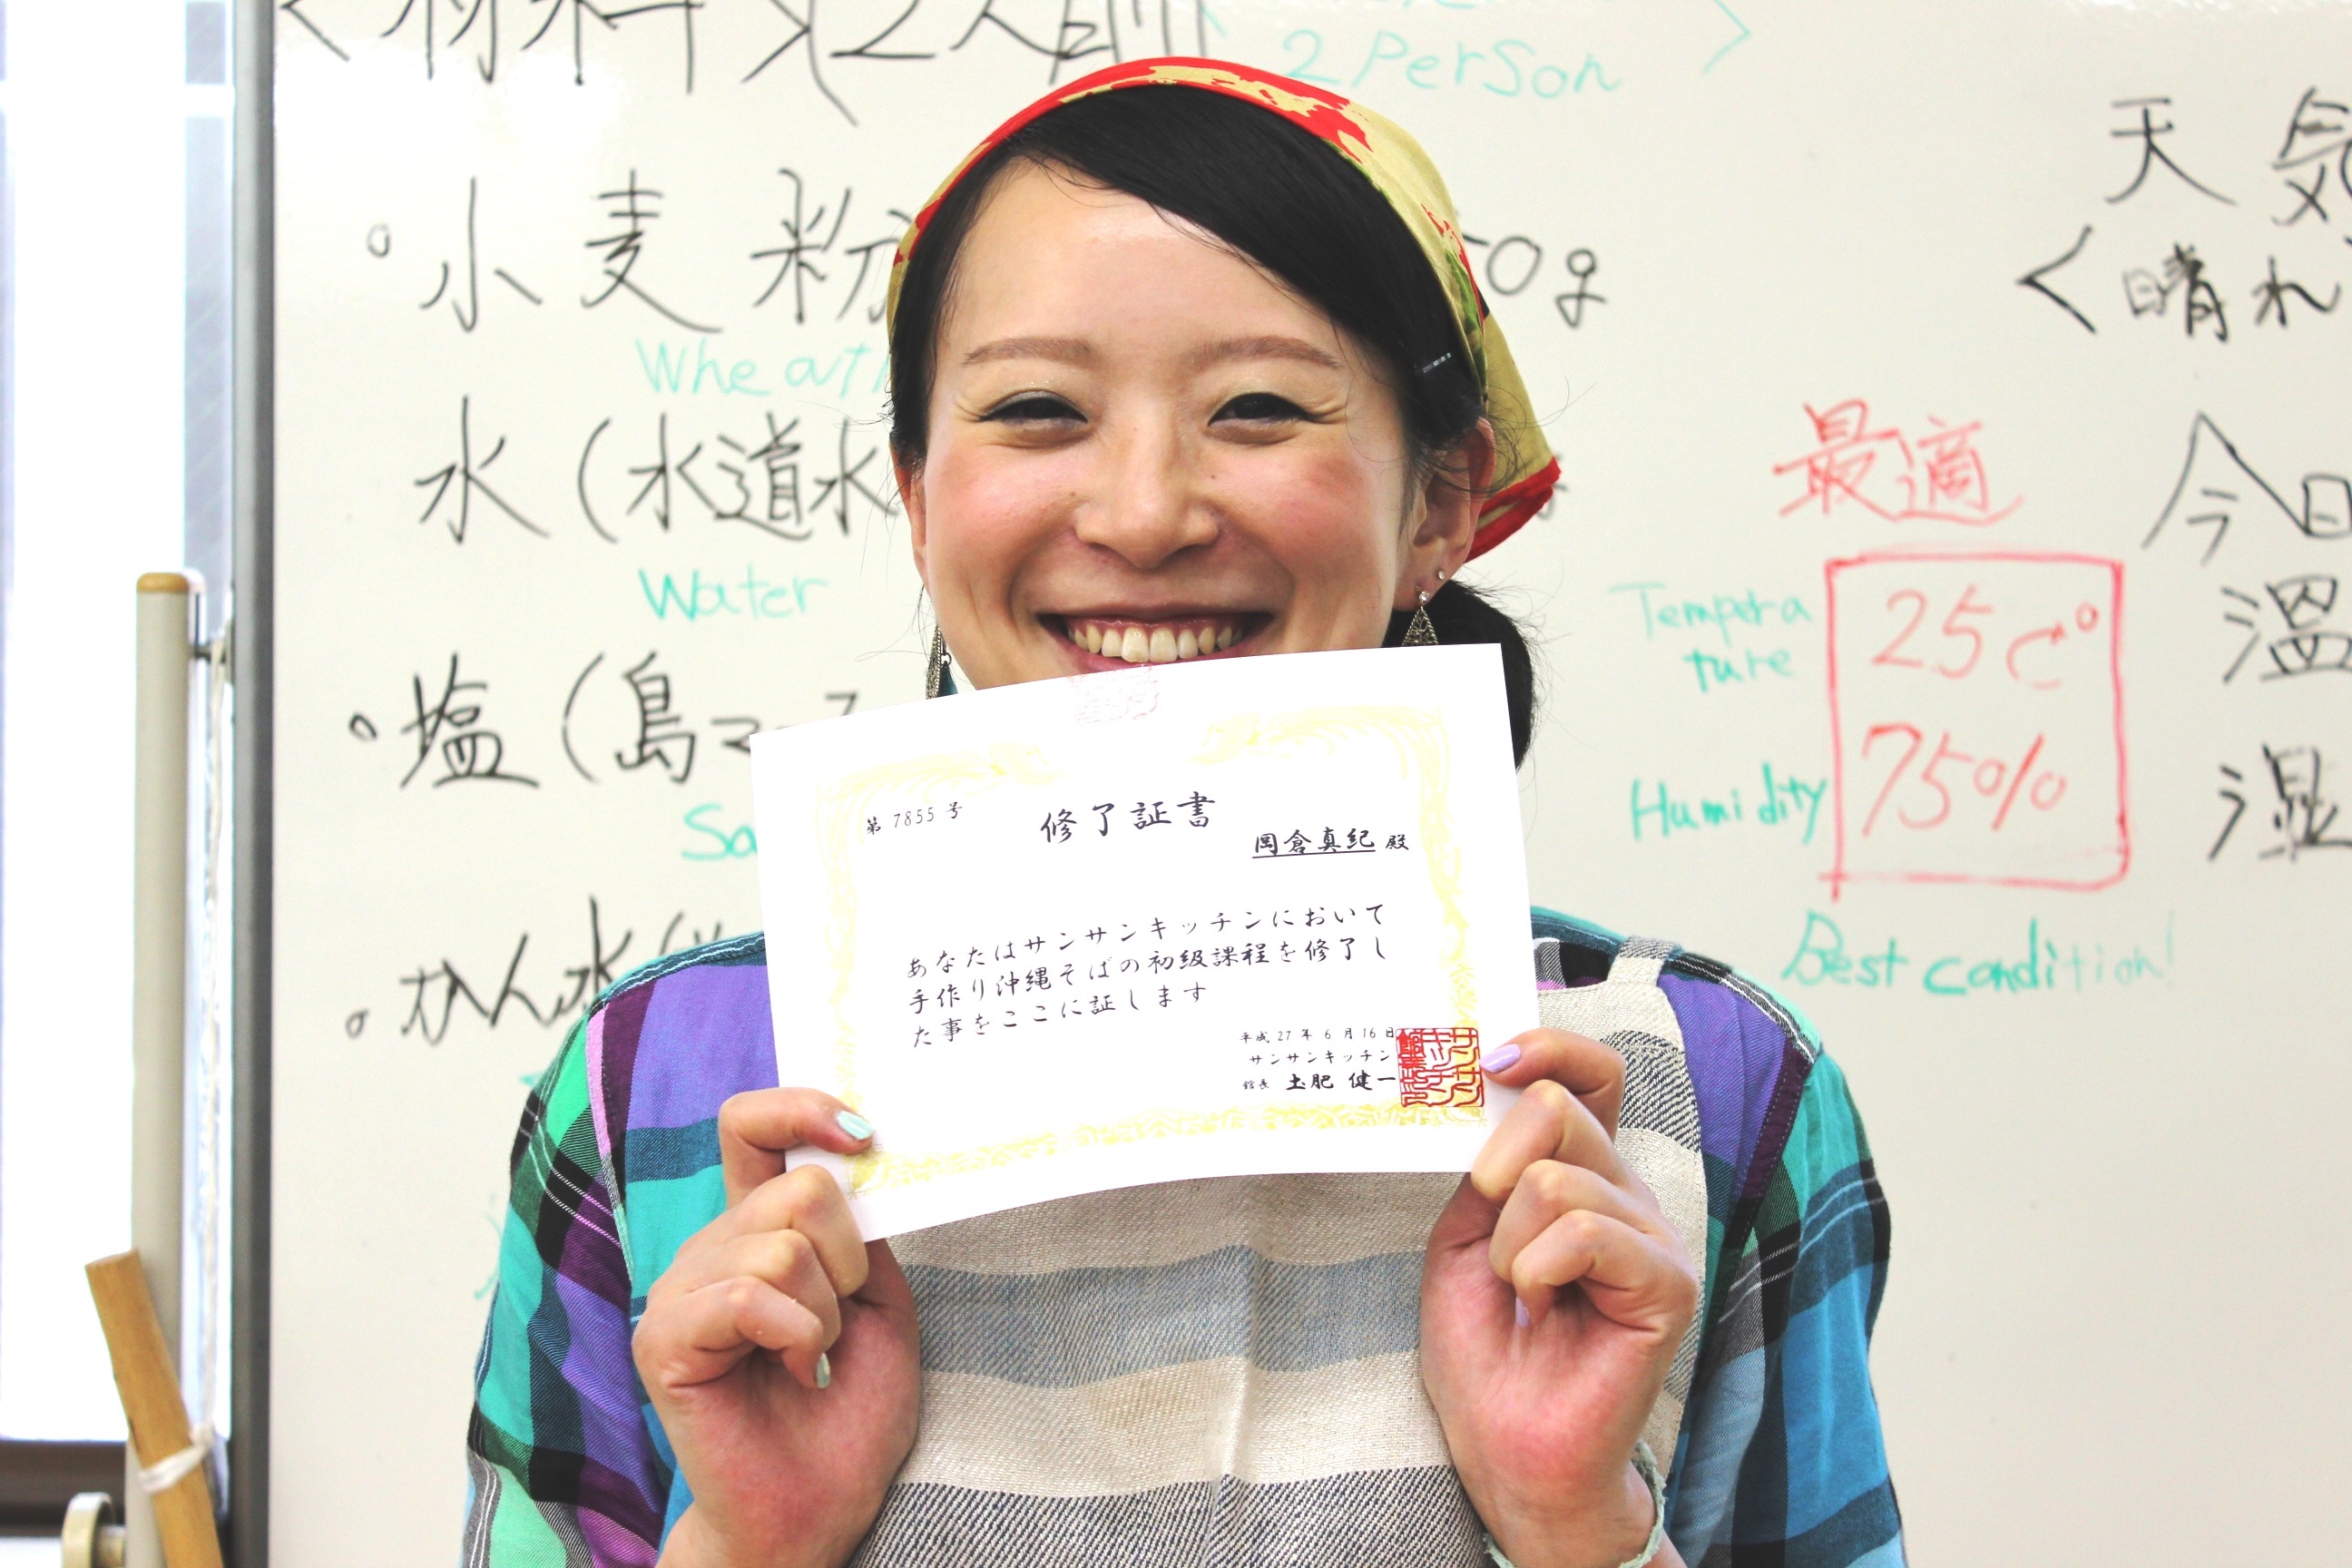 <材料>(2人前
2 Person
小麦粉
水(水道水
Water
塩(島マース
かん水
天気
<晴れ
最適
Tempera
ture
25C°
Humidity
75%
Best condition!
今日
温
湿
第 7855 号
修了証書
岡倉真紀 殿
あなたはサンサンキッチンにおいて
手作り沖縄そばの初級課程を修了し
た事をここに証します
平成 27 年 6 月 16 日
サンサンキッチン
館長 土肥 健一